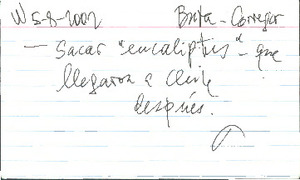 W 5-8-2002 Bruja - Corregir
— Sacar "eucaliptus" - que
llegaron a Chile
después.